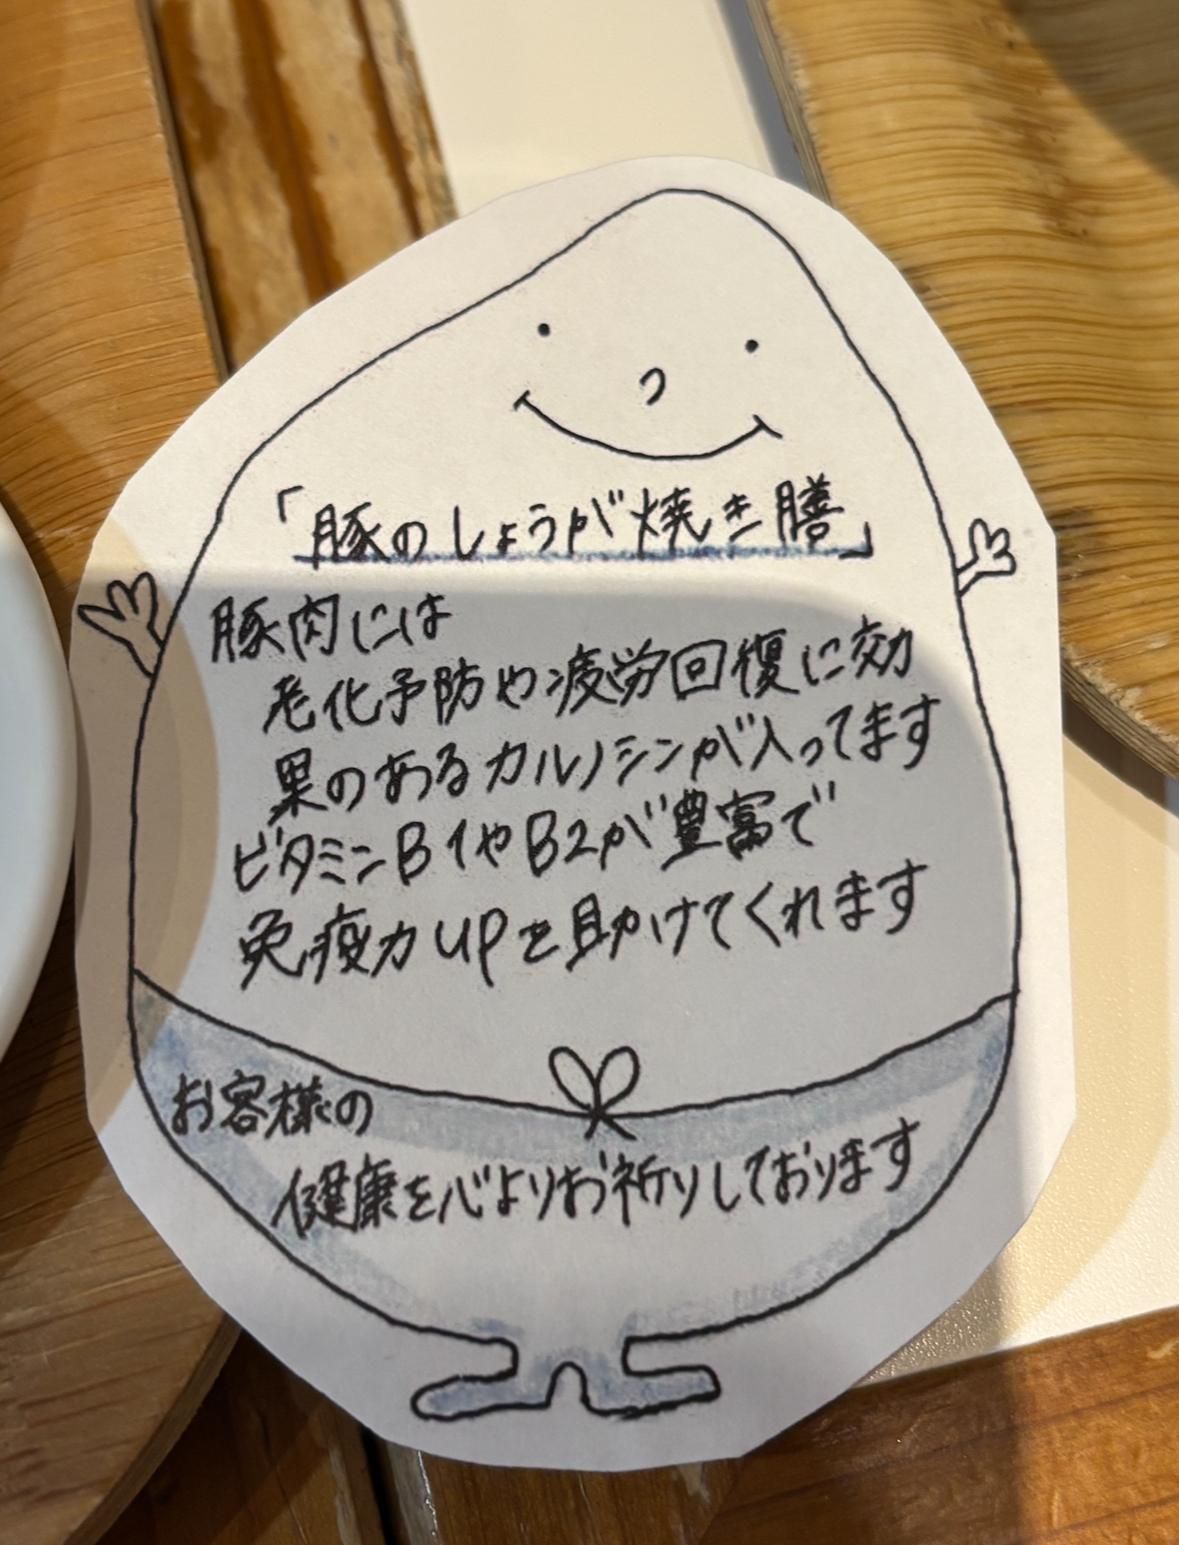 「豚のしょうが焼き膳」
豚肉には
老化予防や疲労回復に効
果のあるカルノシンが入ってます
ビタミンB1やB2が豊富で
免疫力upを助けてくれます
お客様の
健康を心よりお祈りしております